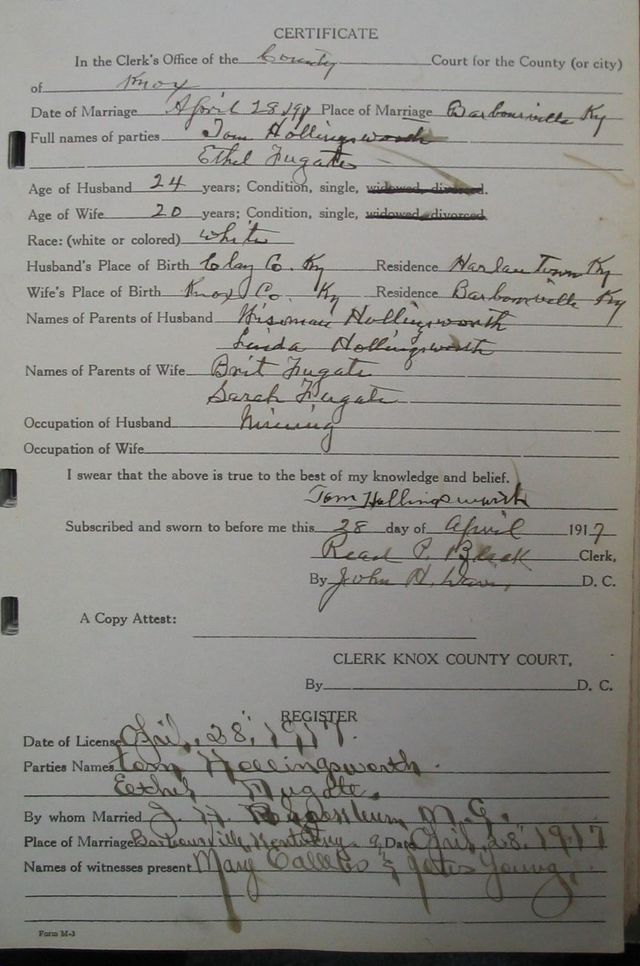 CERTIFICATE
In the Clerk's Office of the County Court for the County (or city)
of Knox
Date of Marriage April 28 191 Place of Marriage Barbourville Ky
Full names of parties Tom Hollingsworth
Ethel Fugate
Age of Husband 24 years; Condition, single, widowed, divorced.
Age of Wife 20 years; Condition, single, widowed, divorced.
Race: (white or colored) white
Husband's Place of Birth Clay Co. Ky Residence Harlan Town Ky
Wife's Place of Birth Knox Co. Ky Residence Barbourville Ky
Names of Parents of Husband Wisman Hollingsworth
Linda Hollingsworth
Names of Parents of Wife Brit Fugate
Sarah Fugate
Occupation of Husband Mining
Occupation of Wife
I swear that the above is true to the best of my knowledge and belief.
Tom Hollingsworth
Subscribed and sworn to before me this 28 day of April 1917
Read P. Black Clerk,
By John H. D. C.
A Copy Attest:
CLERK KNOX COUNTY COURT,
By D. C.
REGISTER
Date of License April, 28, 1917.
Parties Names Tom Hollingsworth.
Eethel Fugate.
By whom Married J. H. M. G.
Place of Marriage Barbourville, Kentucky & Date April, 28, 1917
Names of witnesses present Mary & Young,
Form M-3